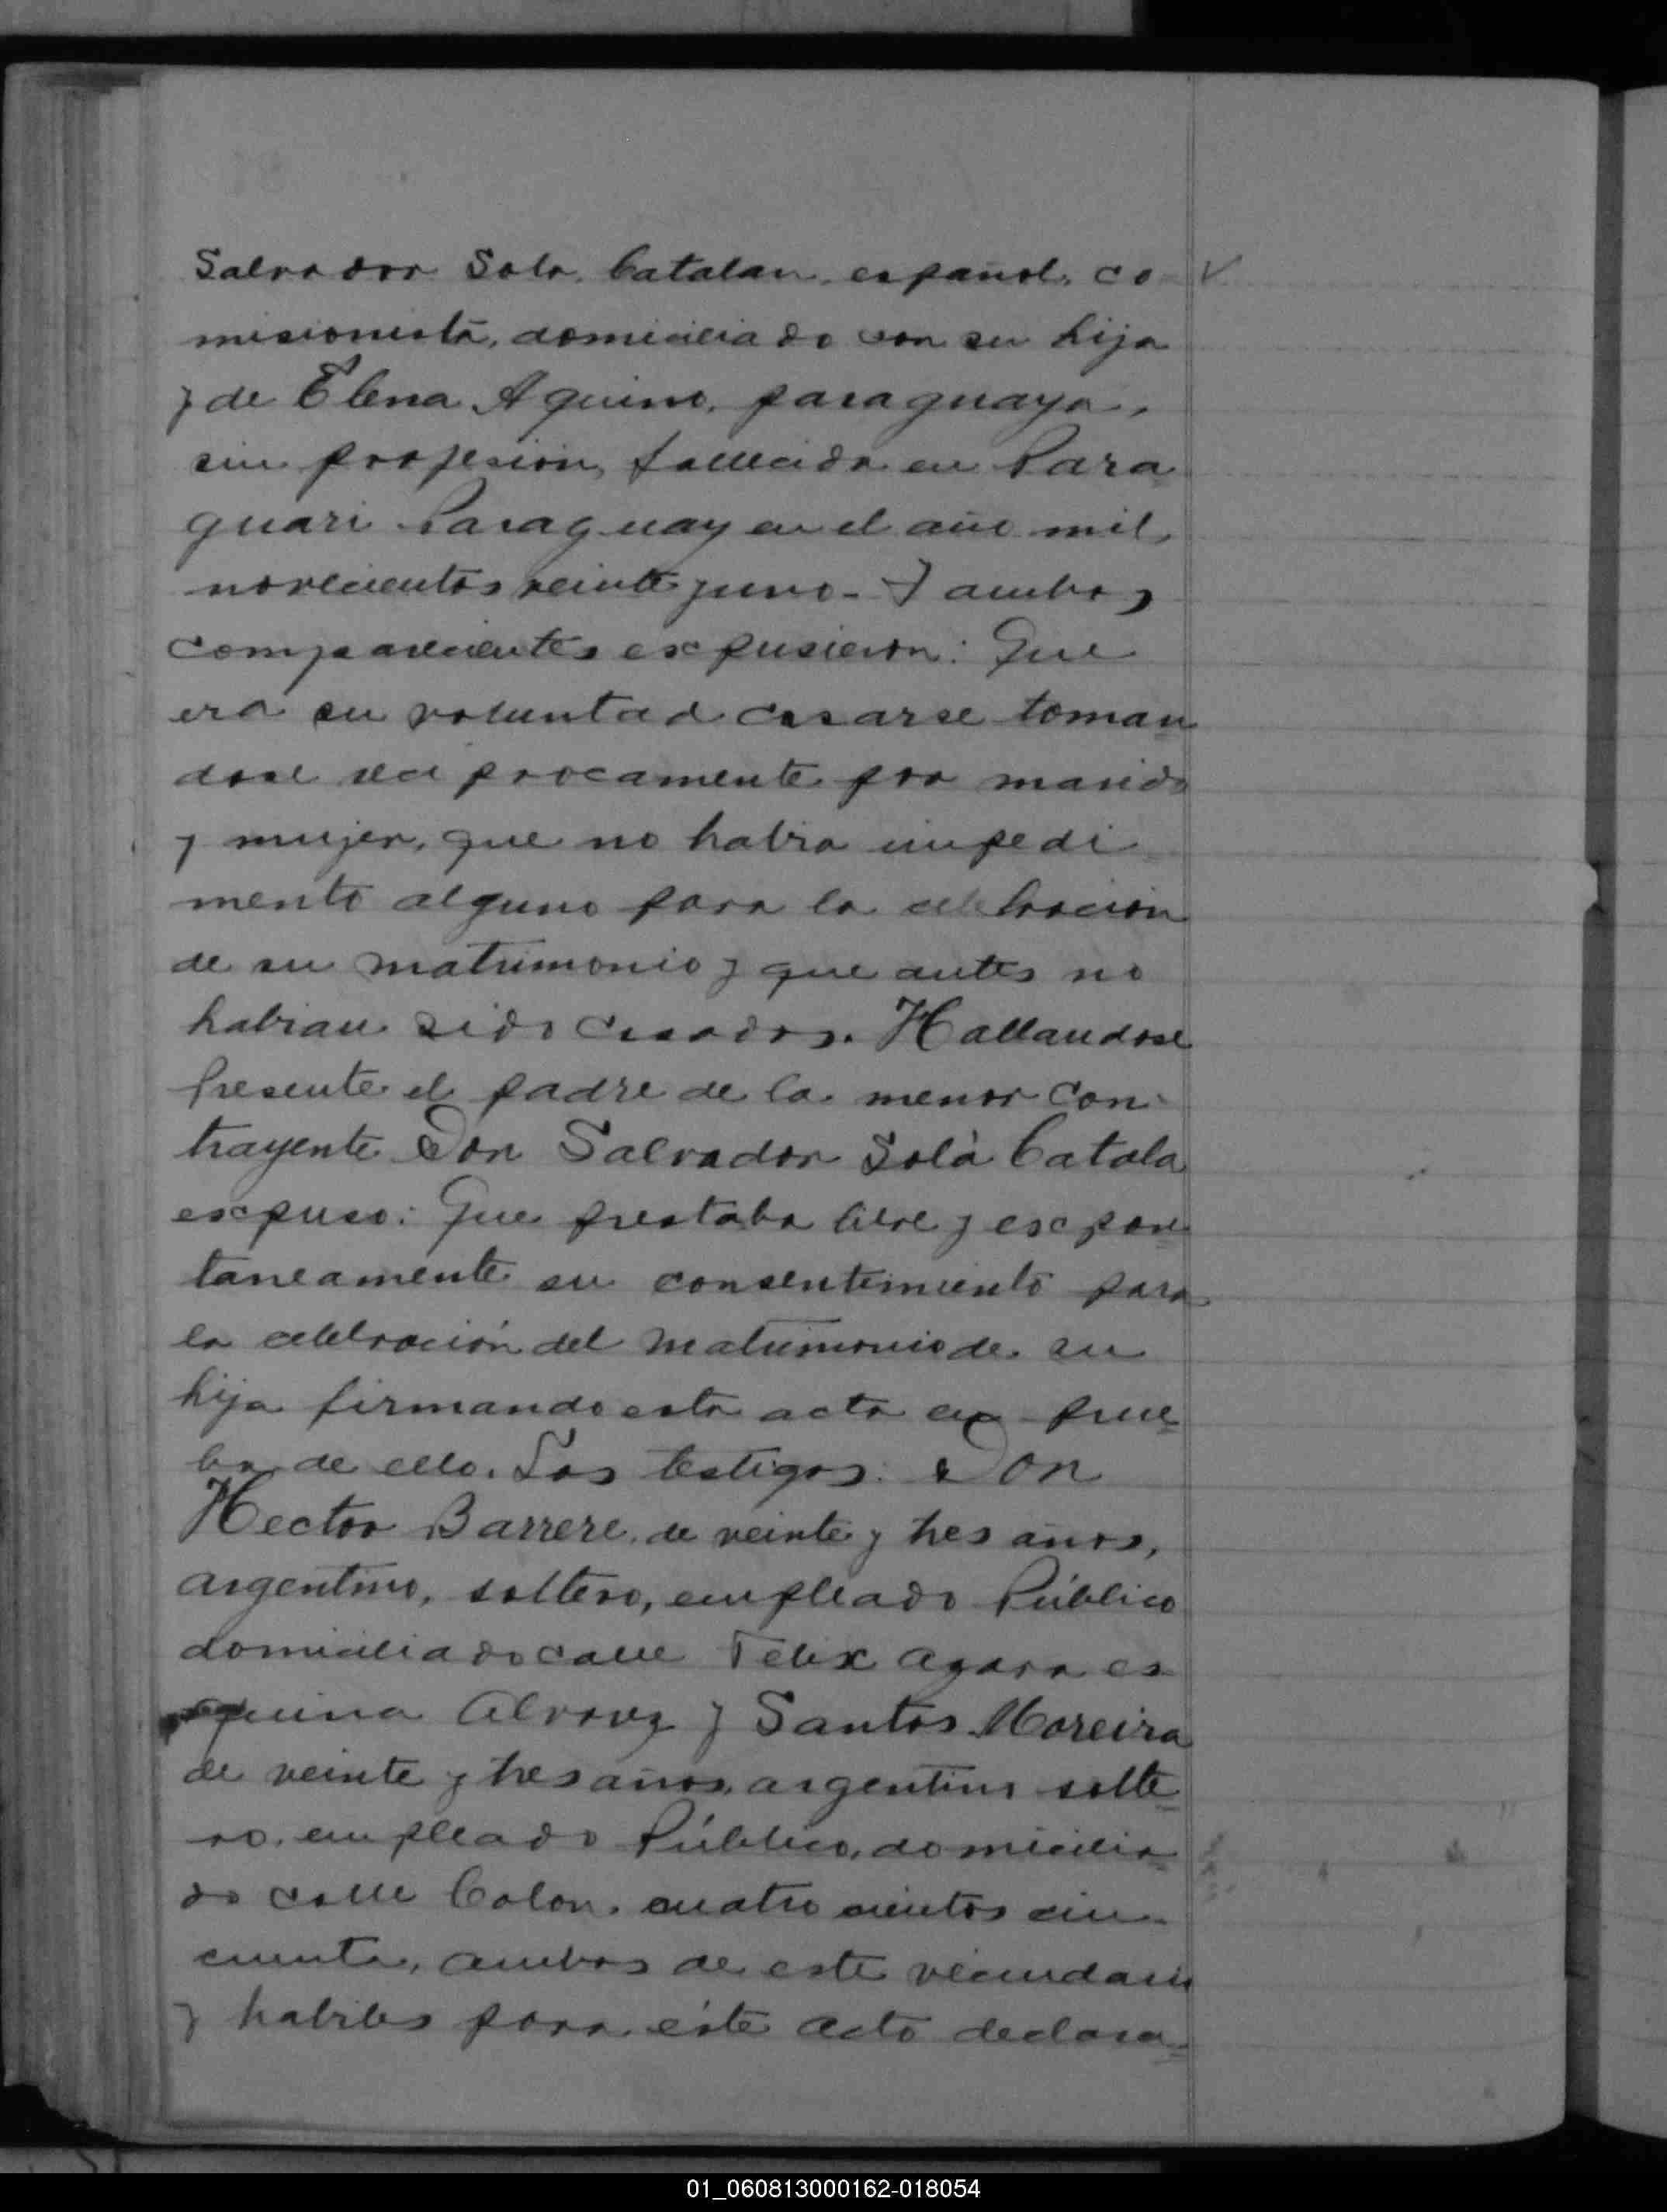 Salvador Sola Catalan, español, co- V
misionista, domiciliado con su hija
y de Elena Aquino, paraguaya,
sin profesion, fallecida en Para
guari Paraguay en el año mil
novecientos veinte y uno - Y ambos
comparecientes expusieron: Que
era su voluntad casarse toman
dose reciprocamente por marido
y mujer, que no habia impedi
mento alguno para la celebracion
de su matrimonio y que antes no
habian sido casados. Hallandose
presente el padre de la menor con-
trayente Don Salvador Solá Catala
expuso: Que prestaba libre y expon
taneamente su consentimiento para
la celebración del matrimonio de su
hija firmando esta acta en prue
ba de ello. Los testigos: Don
Hector Barrere, de veinte y tres años,
argentino, soltero, empleado Público
domiciliado calle Felix Azara es
quina Alvarez y Santos Moreira
de veinte y tres años, argentino solte
ro, empleado Público, domicilia
do calle Colon, cuatro cientos cin-
cuenta, ambos de este vecindario
y habiles para éste acto declara
01_060813000162-018054